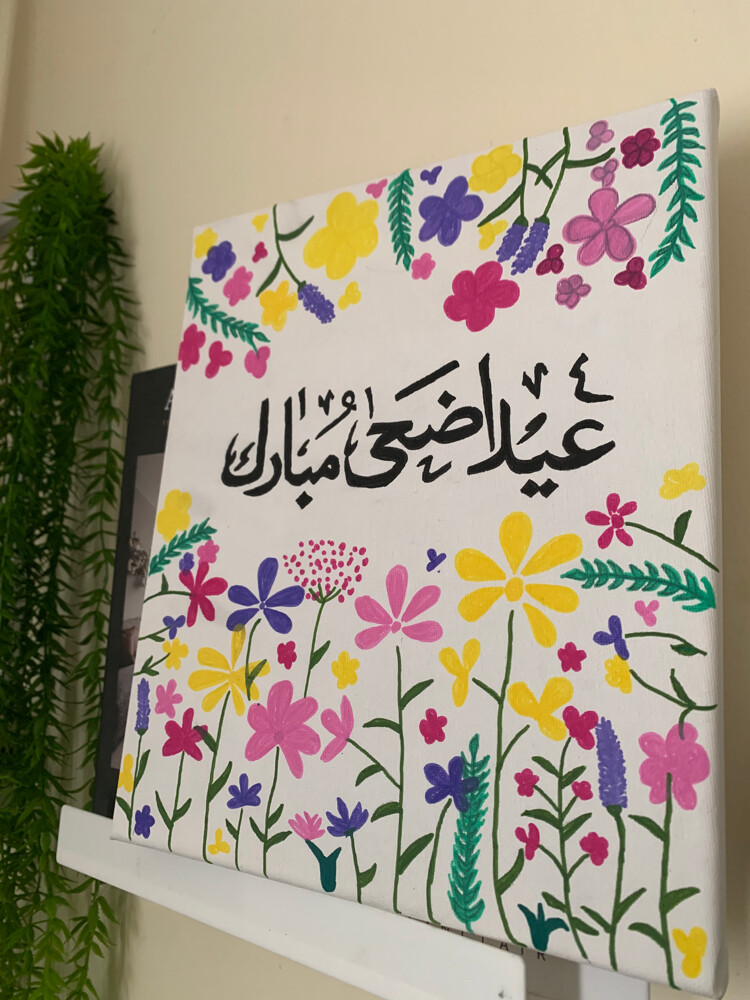 عيد اضحى مُبارك